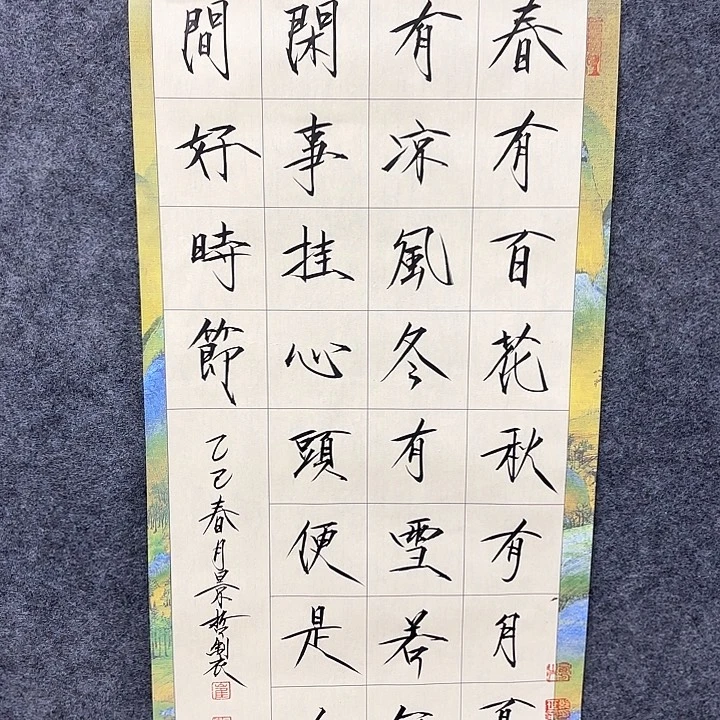 春有百花秋有月夏
有凉風冬有雪若
閑事挂心頭便是
間好時節
乙巳春月景哲製